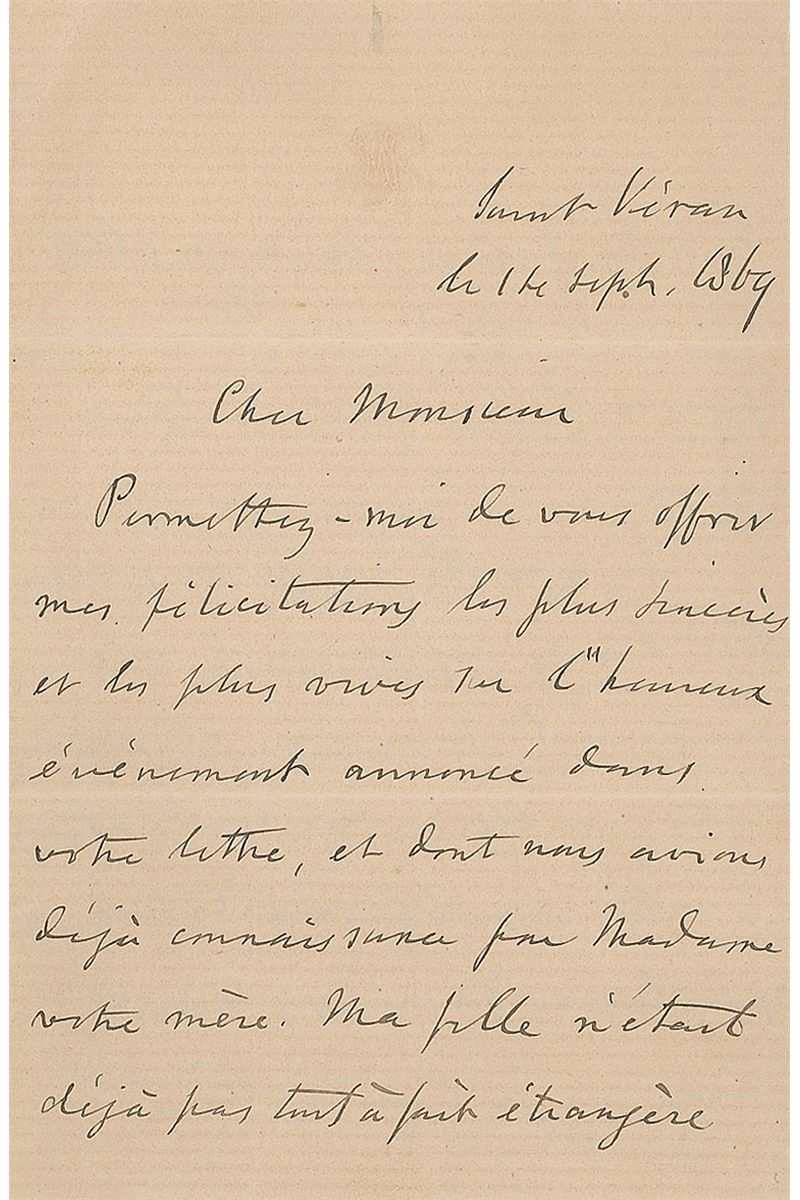 Saint Véran
le 1er sept. 1869
Cher Monsieur
Permettez-moi de vous offrir
mes félicitations les plus sincères
et les plus vives sur l'heureux
événement annoncé dans
votre lettre, et dont nous avions
déjà connaissance par Madame
votre mère. Ma fille n'était
déjà pas tout à fait étrangère